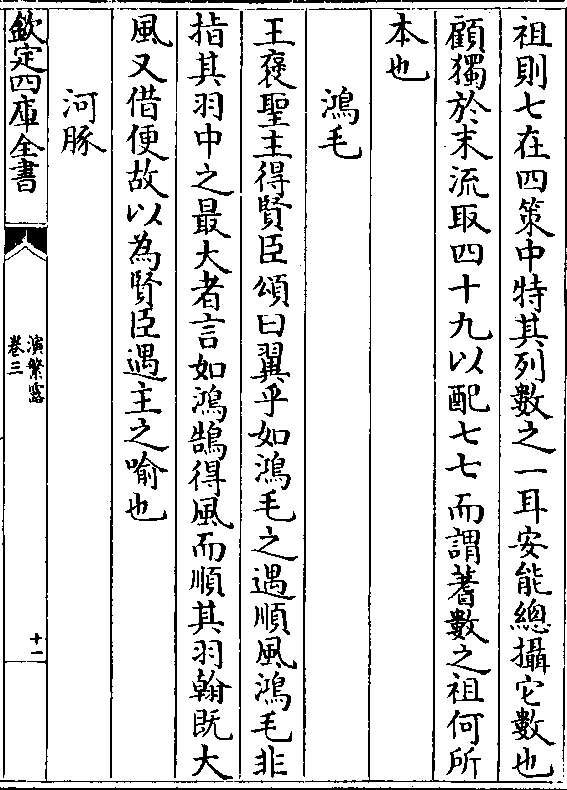 祖則七在四策中特其列數之一耳安能總攝它數也
顧獨於末流取四十九以配七七而謂蓍數之祖何所
本也
鴻毛
王襃聖主得賢臣頌曰翼乎如鴻毛之遇順風鴻毛非
指其羽中之最大者言如鴻鵠得風而順其羽翰既大
風又借便故以為賢臣遇主之喻也
河豚
欽定四庫全書
演繁露
卷三
十一